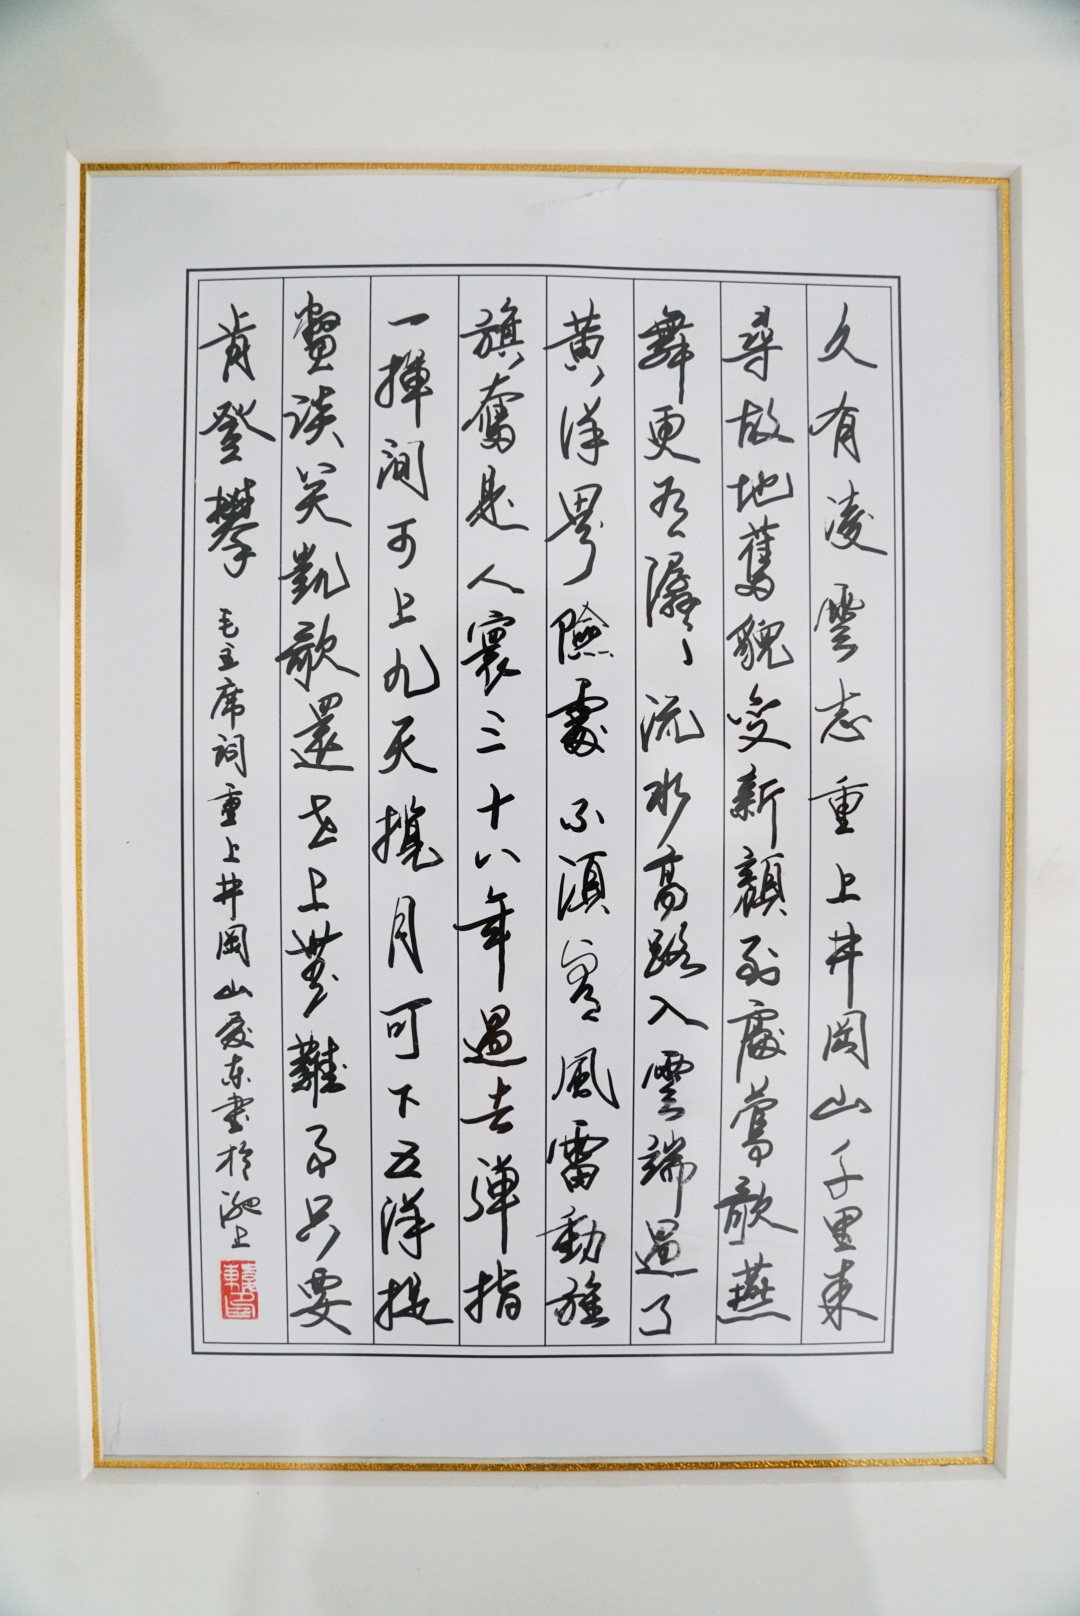 久有凌雲志重上井岡山千里来
尋故地舊貌變新顔到處鶯歌燕
舞更有潺〻流水高路入雲端過了
黄洋界險處不須看風雷動旌
旗奮是人寰三十八年過去彈指
一揮間可上九天攬月可下五洋捉
鱉談笑凱歌還世上無難事只要
肯登攀 毛主席詞重上井岡山 東書於 上